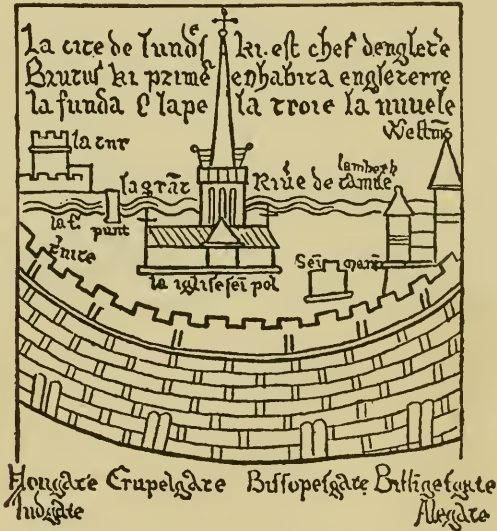 La cite de lundꝭ ki est chef dengletꝰe
Brutus ki primeꝰ enhabita engleterre
la funda & lape la troie la nuuele
Westmꝰ
la tur
lambeth
la grāt Riuꝰe de tamise
punt
Sei mariꝰ
la iglise sei pol
Hongate Crupelgate Bissopesgate Billigesgate
ludgate Alegate